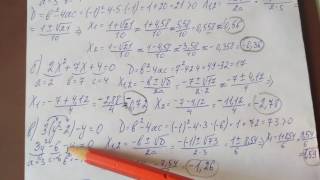 D=b²-4ac=(-1)²-4·5·(-1)=1+20=21>0
1±√21/10 x₁=1+√21/10≈1+4,58/10=5,58/10=0,558≈0,56
x₂=1-√21/10≈1-4,58/10=-3,58/10=-0,358≈-0,36
б) 2x²+7x+4=0 D=b²-4ac=7²-4·2·4=49-32=17
a=2 b=7 c=4 x₁,₂=-b±√D/2a=-7±√17/2·2=-7±4,12/4
x₁=-7+4,12/4=-2,88/4=-0,72 x₂=-7-4,12/4=-11,12/4=-2,78
в) 3(y²-2)-y=0 D=b²-4ac=(-1)²-4·3·(-6)=1+72=73>0
3y²-6-y=0 x₁,₂=-b±√D/2a=-(-1)±√73/2·3=1±8,54/6
a=3 -7,54 -1,26